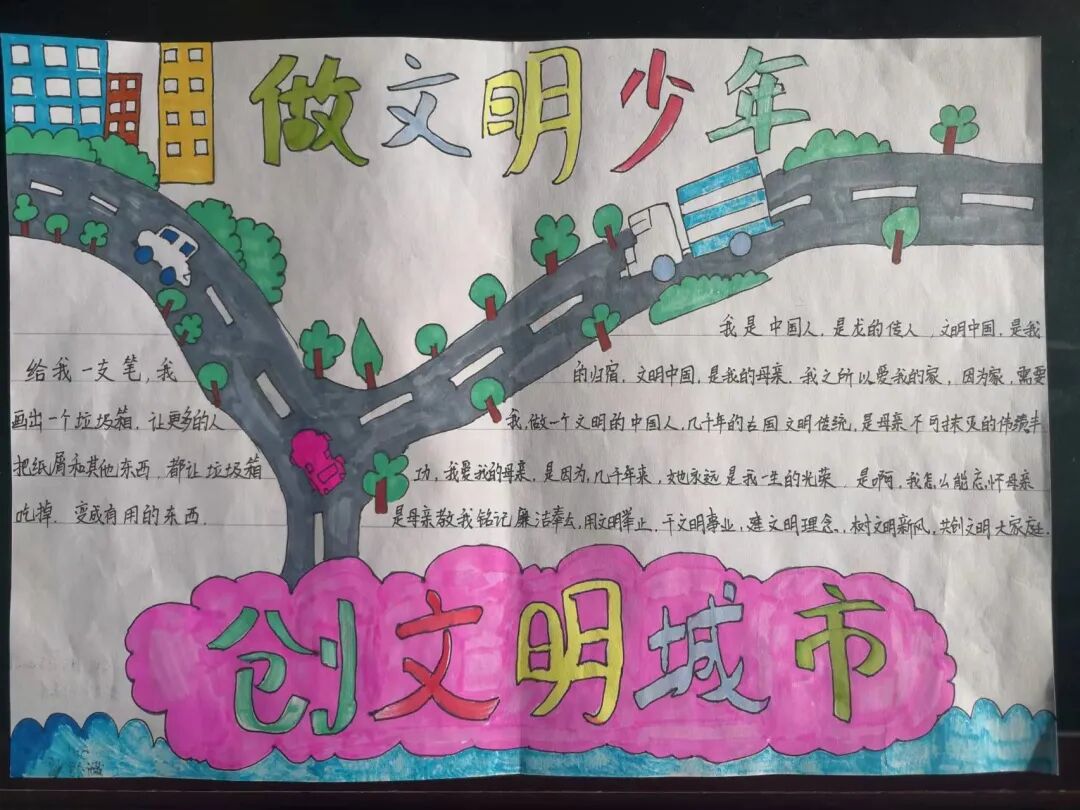 做文明少年
给我一支笔,我
画出一个垃圾箱,让更多的人
把纸屑和其他东西,都让垃圾箱
吃掉.变成有用的东西.
我是中国人,是龙的传人,文明中国,是我
的归宿.文明中国,是我的母亲.我之所以爱我的家,因为家,需要
我,做一个文明的中国人,几千年的古国文明传统,是母亲不可抹灭的伟绩丰
功,我爱我的母亲,是因为,几千年来,她永远是我一生的光荣.是啊,我怎么能忘怀母亲
是母亲教我铭记廉洁奉公,用文明举止,干文明事业,建文明理念,树文明新风,共创文明大家庭.
创文明城市